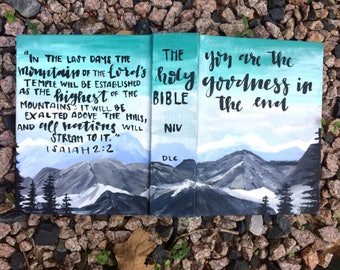 "IN THE LAST DAYS THE
mountain OF THE Lord's
TEMPLE WILL BE ESTABLISHED
AS THE highest OF THE
MOUNTAINS; IT WILL BE
EXALTED ABOVE THE HILLS,
AND all nations WILL
STREAM TO IT."
ISAIAH 2:2
THE
holy
BIBLE
NIV
DLC
you are the
goodness in
the end